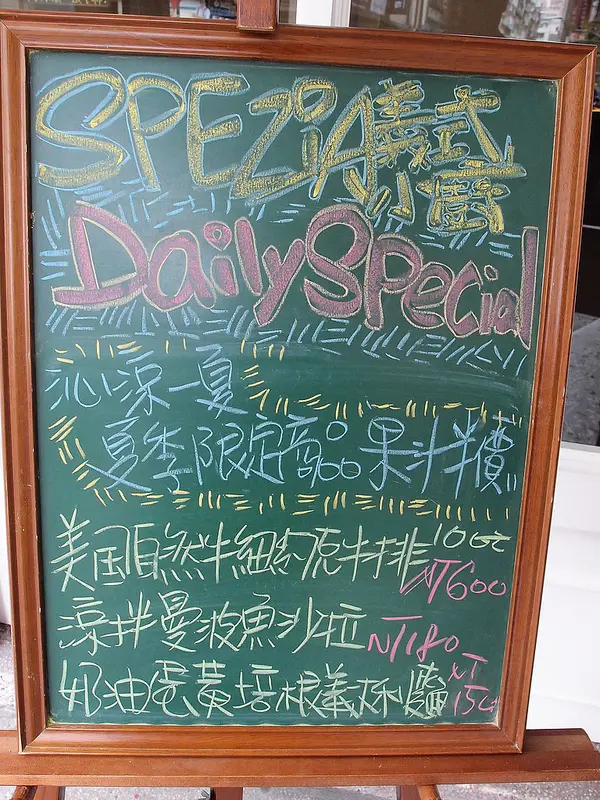 SPEZiA 義式
小廚
Daily Special
沁涼一夏
夏季限定商品 果汁半價!!
美国自然牛紐約克牛排 10oz NT600
涼拌曼波魚沙拉 NT180
奶油蛋黃培根義大利麵 NT150